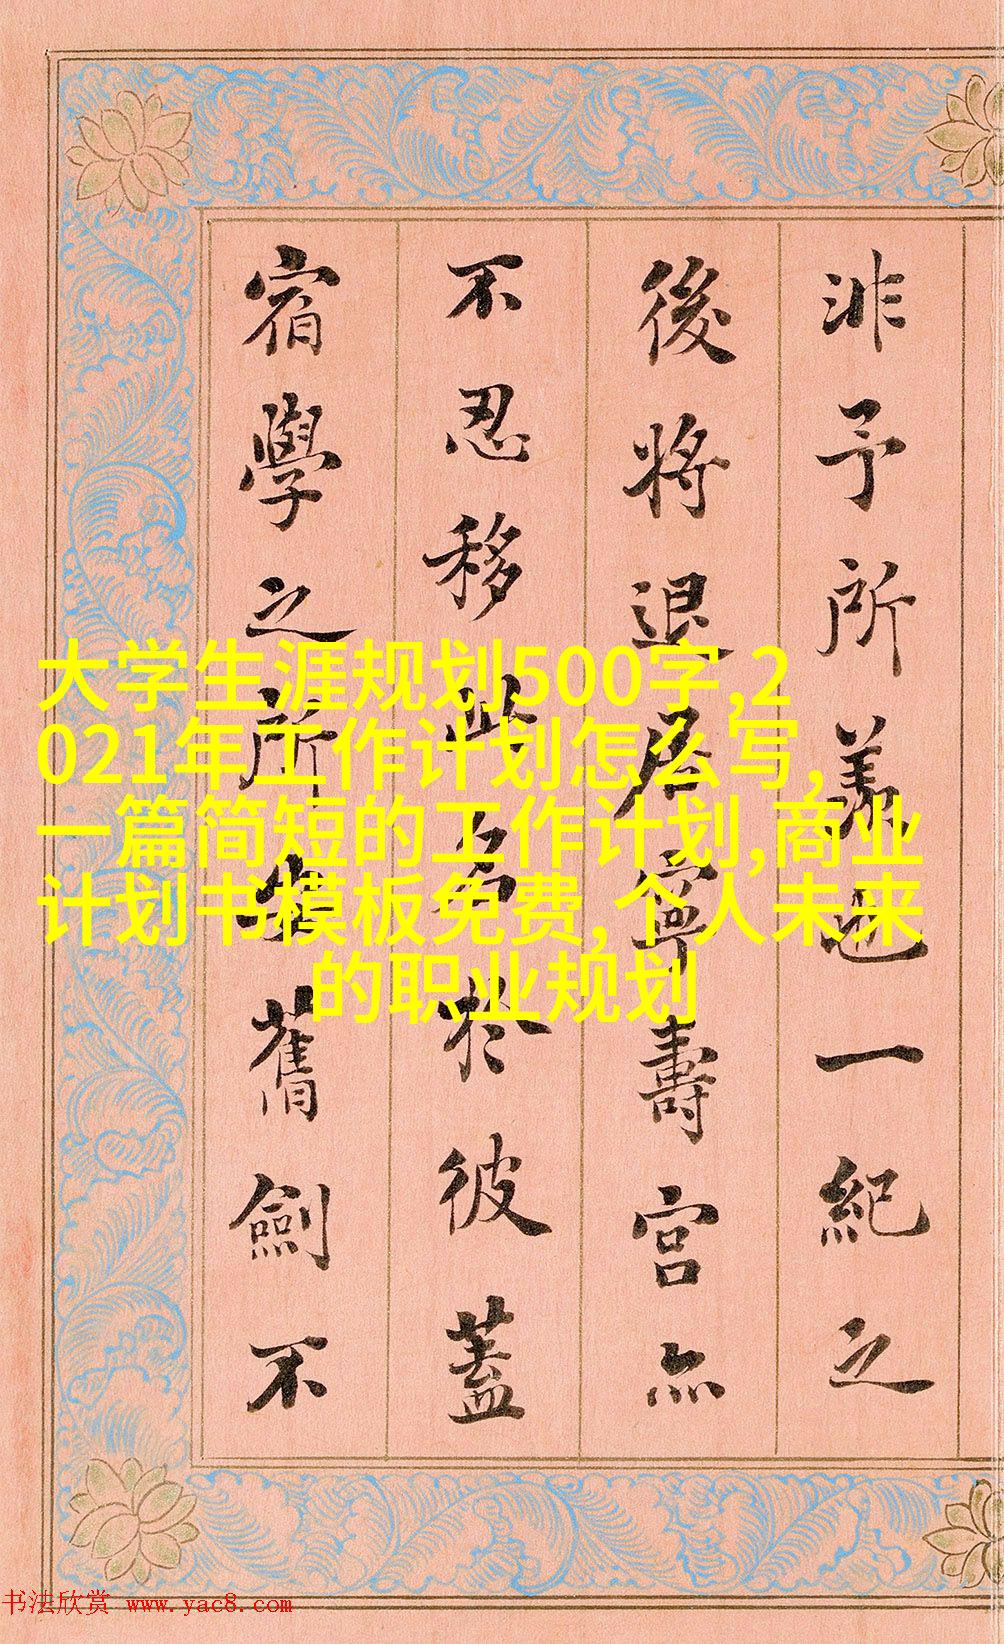 非予所羨也一紀之
後將退居寧壽宮亦
不忍移此名於彼蓋
宿學之所安舊劍不
大学生涯规划500字,2
021年工作计划怎么写,
一篇简短的工作计划,商业
计划书模板免费,个人未来
的职业规划
书法欣赏 www.yac8.com